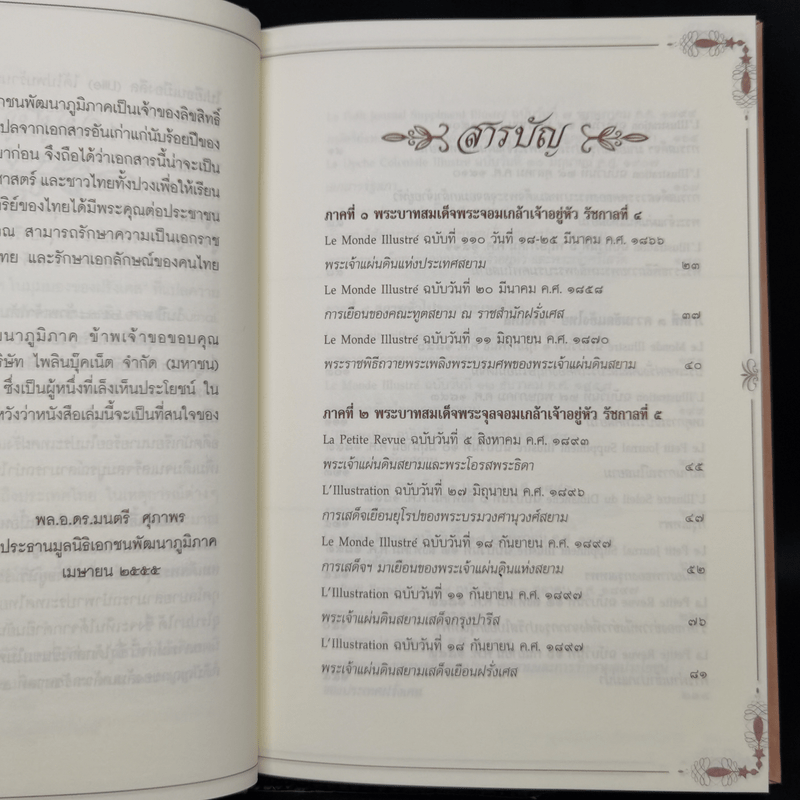 กชนพัฒนาภูมิภาคเป็นเจ้าของลิขสิทธิ์
ปลจากเอกสารอันเก่าแก่นับร้อยปีของ
าก่อน จึงถือได้ว่าเอกสารนี้น่าจะเป็น
าศาสตร์ และชาวไทยทั้งปวงเพื่อให้เรียน
ริย์ของไทยได้มีพระคุณต่อประชาชน
ณ สามารถรักษาความเป็นเอกราช
ทย และรักษาเอกลักษณ์ของคนไทย
นาภูมิภาค ข้าพเจ้าขอขอบคุณ
ริษัท ไพลินบุ๊คเน็ต จำกัด (มหาชน)
ซึ่งเป็นผู้หนึ่งที่เล็งเห็นประโยชน์ ใน
หวังว่าหนังสือเล่มนี้จะเป็นที่สนใจของ
พล.อ.ดร.มนตรี ศุภาพร
ประธานมูลนิธิเอกชนพัฒนาภูมิภาค
เมษายน ๒๕๕๕
สารบัญ
ภาคที่ ๑ พระบาทสมเด็จพระจอมเกล้าเจ้าอยู่หัว รัชกาลที่ ๔
Le Monde Illustré ฉบับที่ ๑๑๐ วันที่ ๑๘-๒๕ มีนาคม ค.ศ. ๑๘๖๖
พระเจ้าแผ่นดินแห่งประเทศสยาม ๒๓
Le Monde Illustré ฉบับวันที่ ๒๐ มีนาคม ค.ศ. ๑๘๕๘
การเยือนของคณะทูตสยาม ณ ราชสำนักฝรั่งเศส ๓๗
Le Monde Illustré ฉบับวันที่ ๑๑ มิถุนายน ค.ศ. ๑๘๗๐
พระราชพิธีถวายพระเพลิงพระบรมศพของพระเจ้าแผ่นดินสยาม ๔๐
ภาคที่ ๒ พระบาทสมเด็จพระจุลจอมเกล้าเจ้าอยู่หัว รัชกาลที่ ๕
La Petite Revue ฉบับวันที่ ๕ สิงหาคม ค.ศ. ๑๘๙๓
พระเจ้าแผ่นดินสยามและพระโอรสพระธิดา ๔๕
L'Illustration ฉบับวันที่ ๒๗ มิถุนายน ค.ศ. ๑๘๙๖
การเสด็จเยือนยุโรปของพระบรมวงศานุวงศ์สยาม ๔๗
Le Monde Illustré ฉบับวันที่ ๑๘ กันยายน ค.ศ. ๑๘๙๗
การเสด็จฯ มาเยือนของพระเจ้าแผ่นดินแห่งสยาม ๕๒
L'Illustration ฉบับวันที่ ๑๑ กันยายน ค.ศ. ๑๘๙๗
พระเจ้าแผ่นดินสยามเสด็จกรุงปารีส ๗๖
L'Illustration ฉบับวันที่ ๑๘ กันยายน ค.ศ. ๑๘๙๗
พระเจ้าแผ่นดินสยามเสด็จเยือนฝรั่งเศส ๘๑